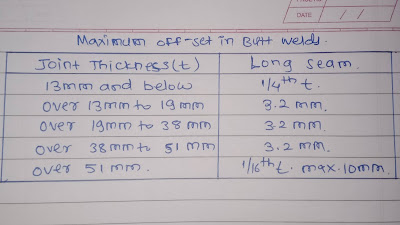 DATE / /
Maximum off-set in Butt welds.
Joint Thickness(t) Long Seam.
13mm and below 1/4th t.
over 13mm to 19mm 3.2 mm.
over 19mm to 38mm 3.2 mm.
over 38mm to 51mm 3.2 mm.
over 51mm. 1/16th t. max.10mm.